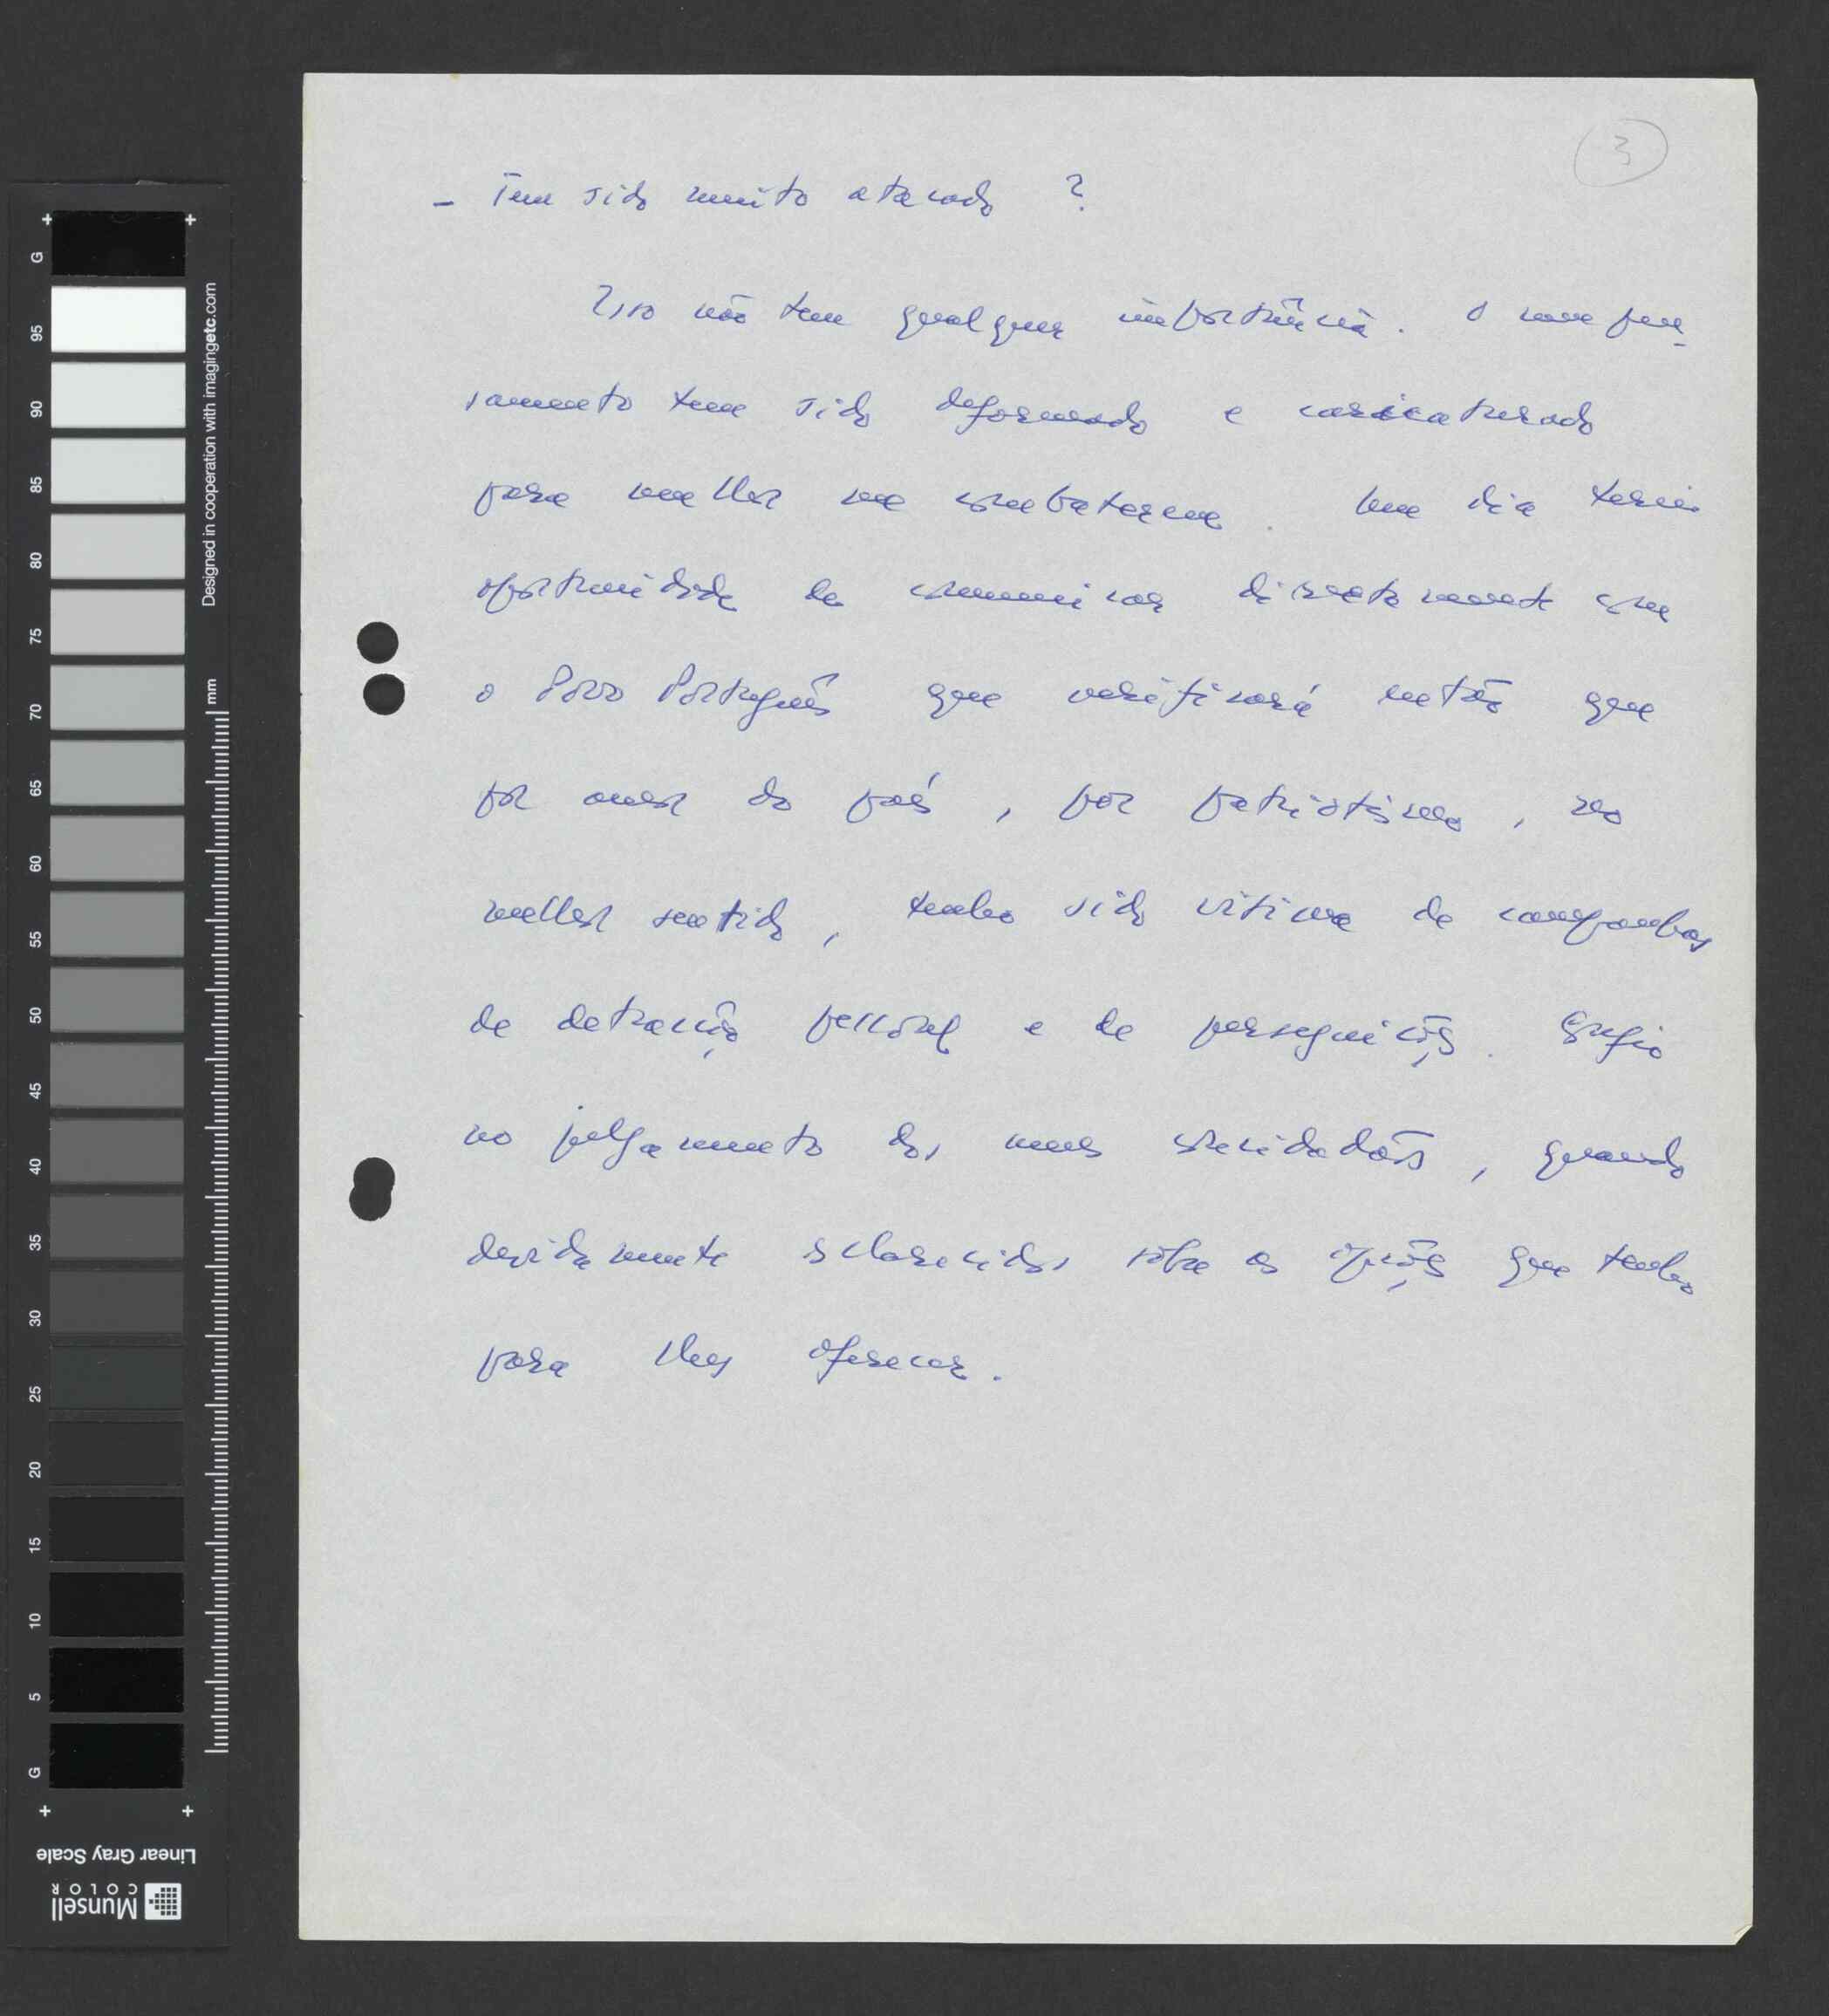 3
- Tem sido muito atacado ?
Isso não tem qualquer importância. O meu pen-
samento tem sido deformado e caricaturado
para melhor me combaterem. Um dia terei
oportunidade de comunicar directamente com
o Povo Português que verificará então que
por amor do país, por patriotismo, no
melhor sentido, tenho sido vítima de campanhas
de detracção pessoal e de perseguições. Confio
no julgamento dos meus concidadãos, quando
devidamente esclarecidos sôbre as opções que tenho
para lhes oferecer.
G
95
90
85
80
75
70
65
60
55
50
45
40
35
30
25
20
15
10
5
G
Designed in cooperation with imagingetc.com
mm
Linear Gray Scale
Munsell
COLOR